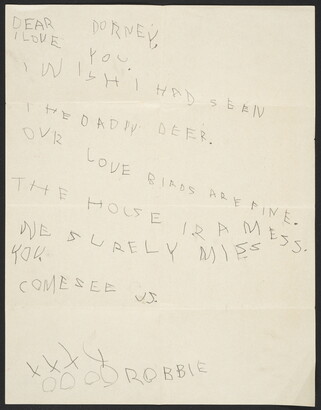 DEAR DORNEY,
I LOVE YOU.
I WISH I HAD SEEN
THE DADDY DEER.
OUR LOVE BIRDS ARE FINE.
THE HOUSE IR A MESS.
WE SURELY MISS
YOU.
COME SEE US.
XXXX
OOOO ROBBIE